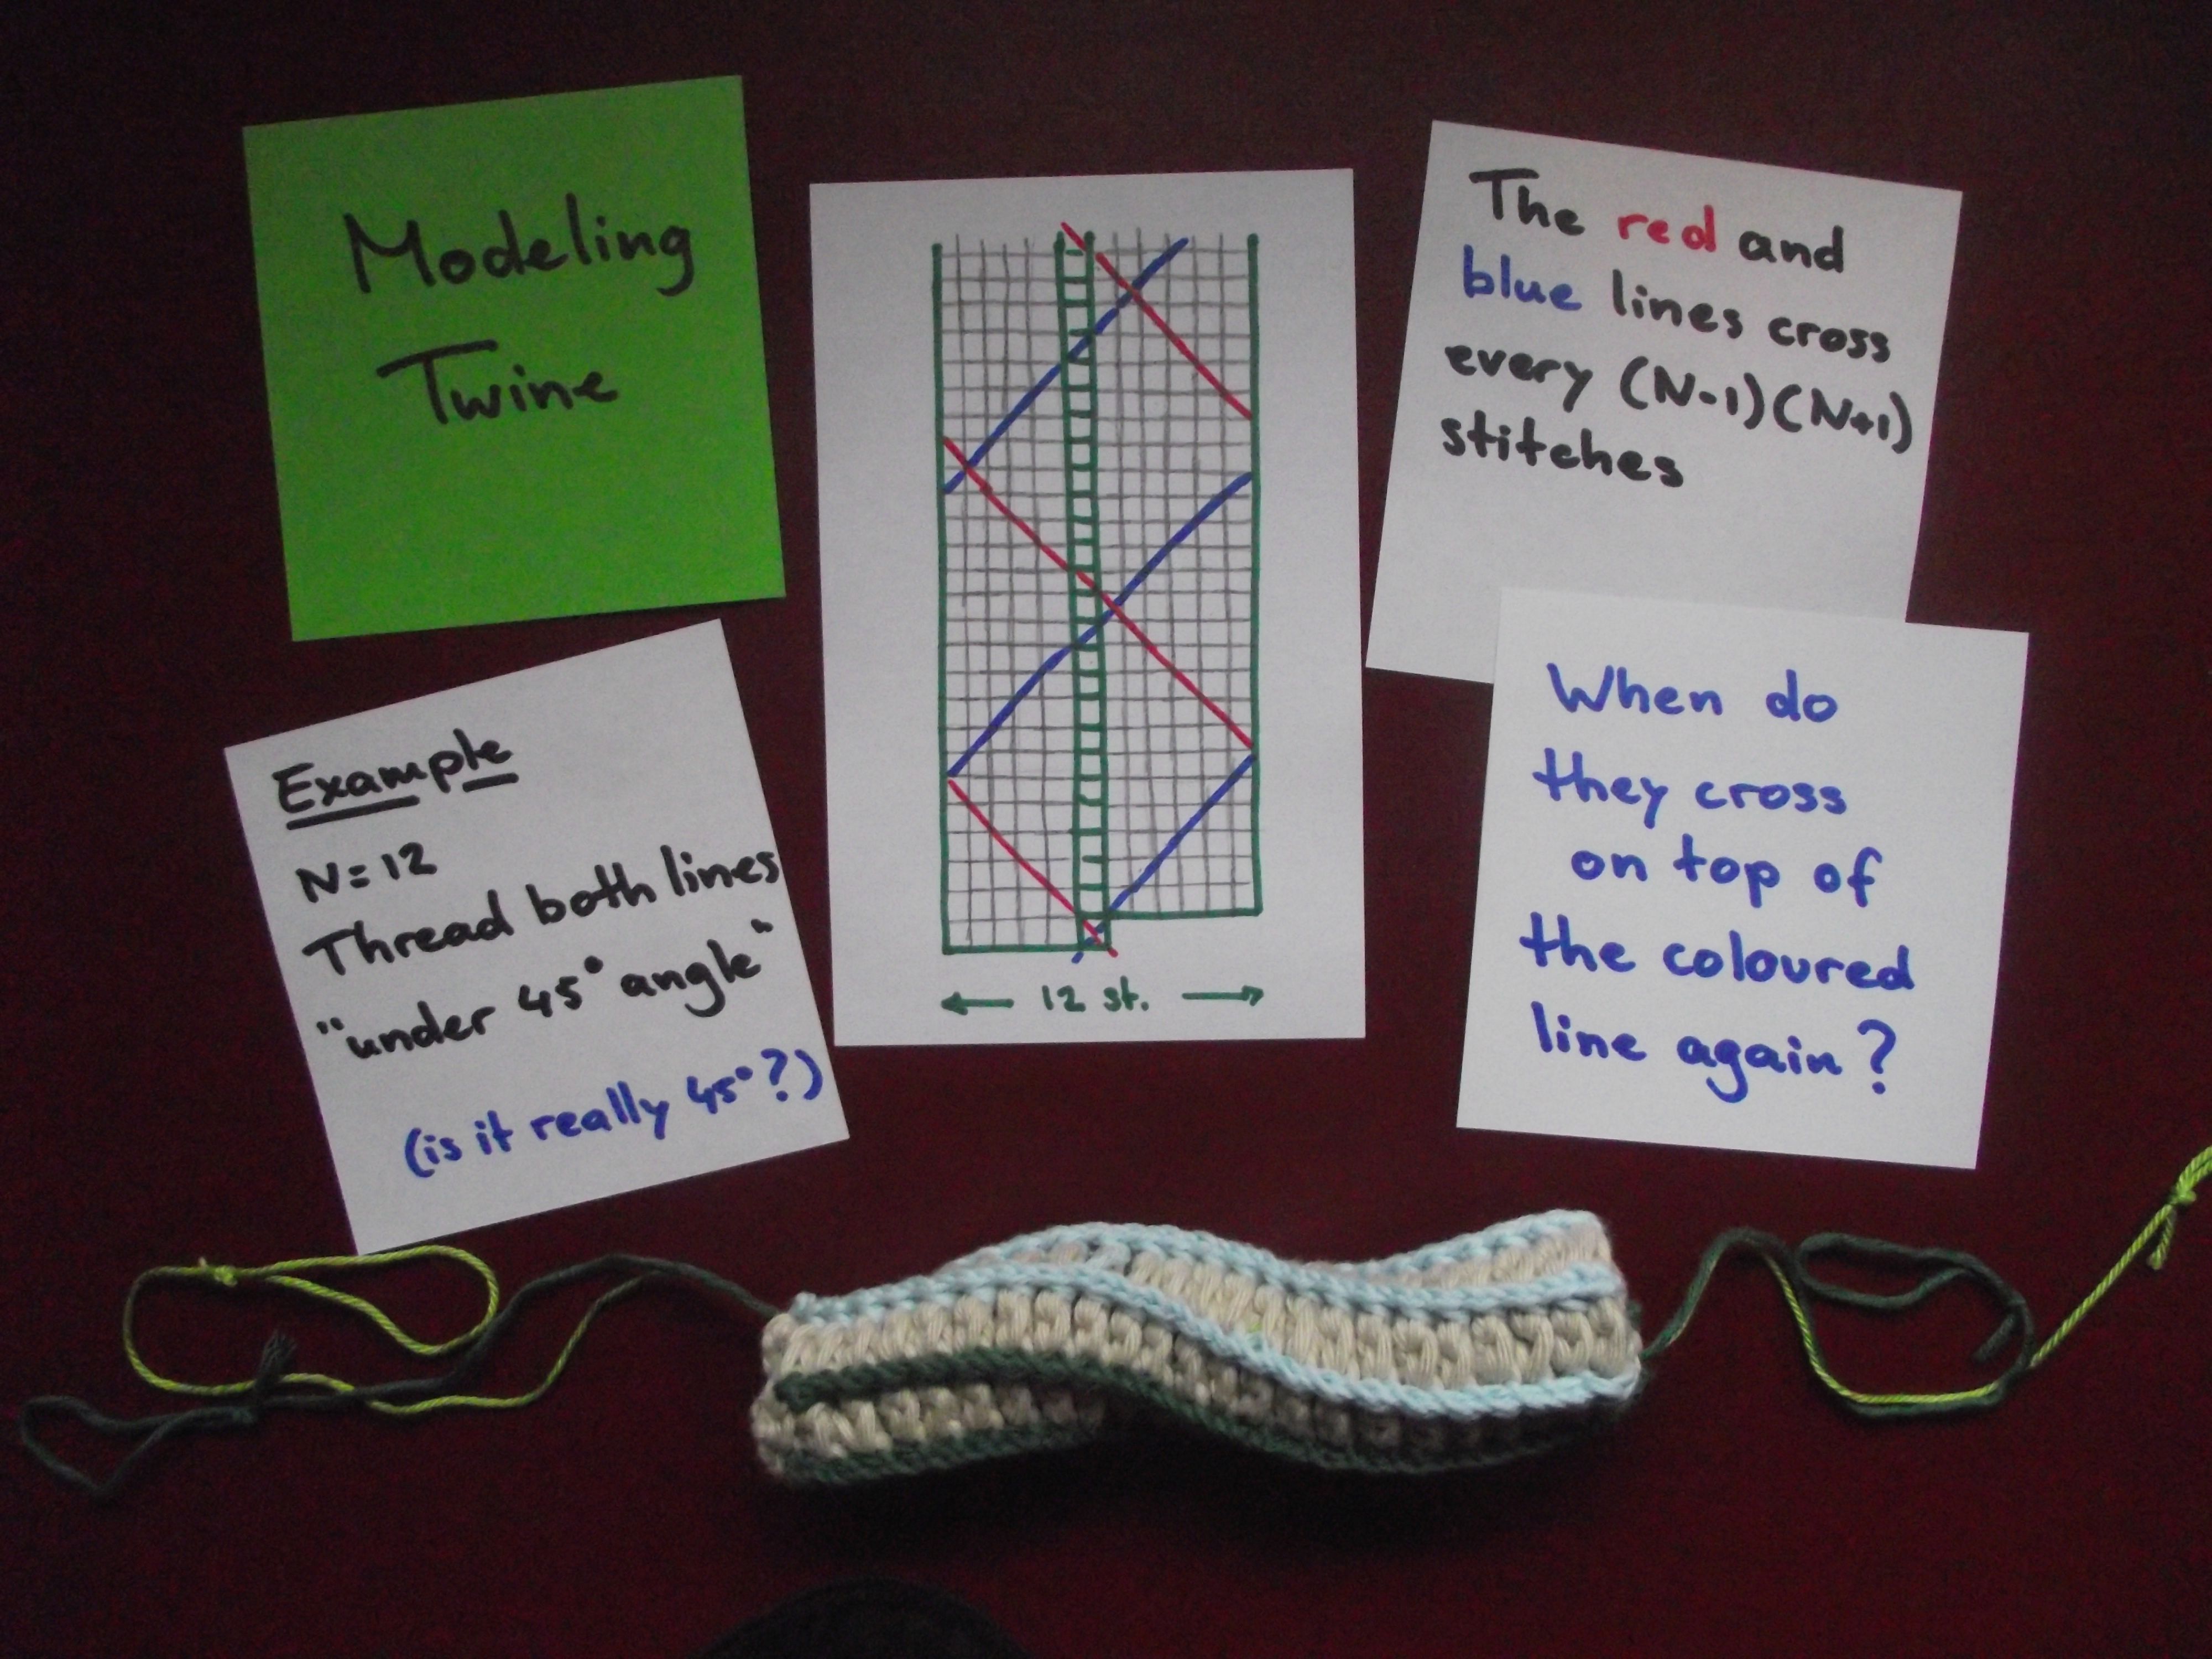 Modeling
Twine
Example
N=12
Thread both lines
"under 45° angle"
(is it really 45°?)
12 st.
The red and
blue lines cross
every (N-1)(N+1)
stitches
When do
they cross
on top of
the coloured
line again?